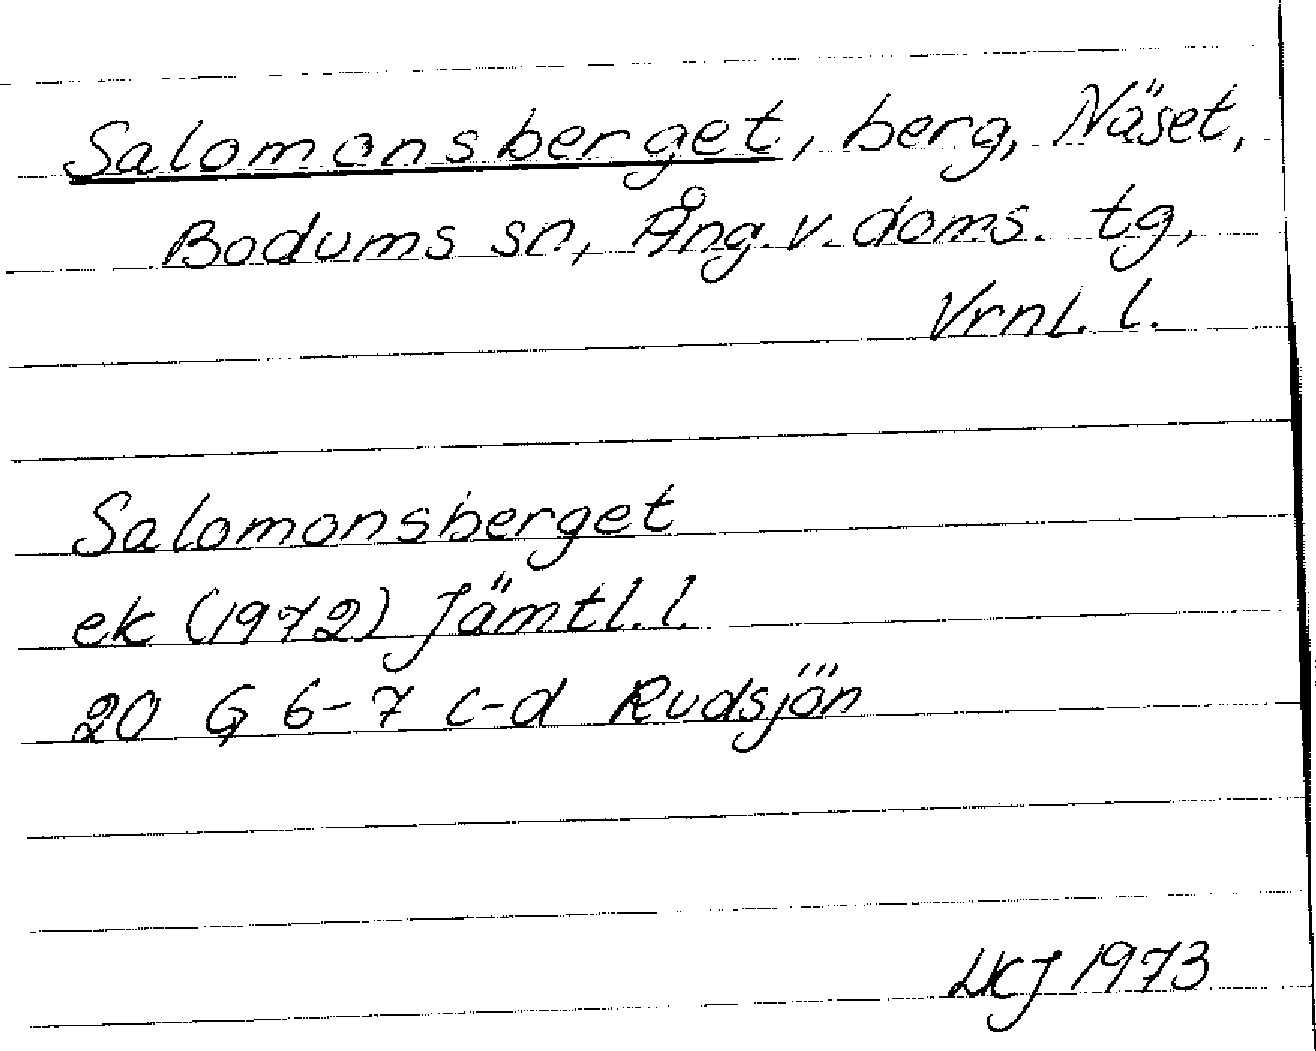 Salomonsberget, berg, Näset,
Bodums sn, Ång. v. doms. tg,
Vrnl. l.
Salomonsberget
ek (1972) Jämtl. l.
20 G 6-7 c-d Rudsjön
LKJ 1973